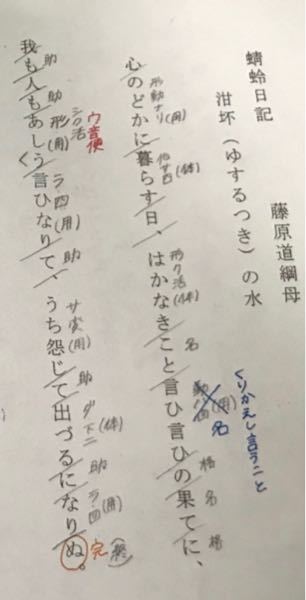 蜻蛉日記
藤原道綱母
泔坏(ゆするつき)の水
くりかえし言うこと
心のどかに暮らす日、はかなきこと言ひ言ひの果てに、
形動ナリ(用) (体) 形ク活(体) 名 (用) 名 格 名 格
ウ音便
我も人もあしう言ひなりて、うち怨じて出づるになりぬ。
助 助 形(用) シク活 ラ四(用) 助 サ変(用) 助 ダ下二(体) 助 ラ四(用) 完(終)
く